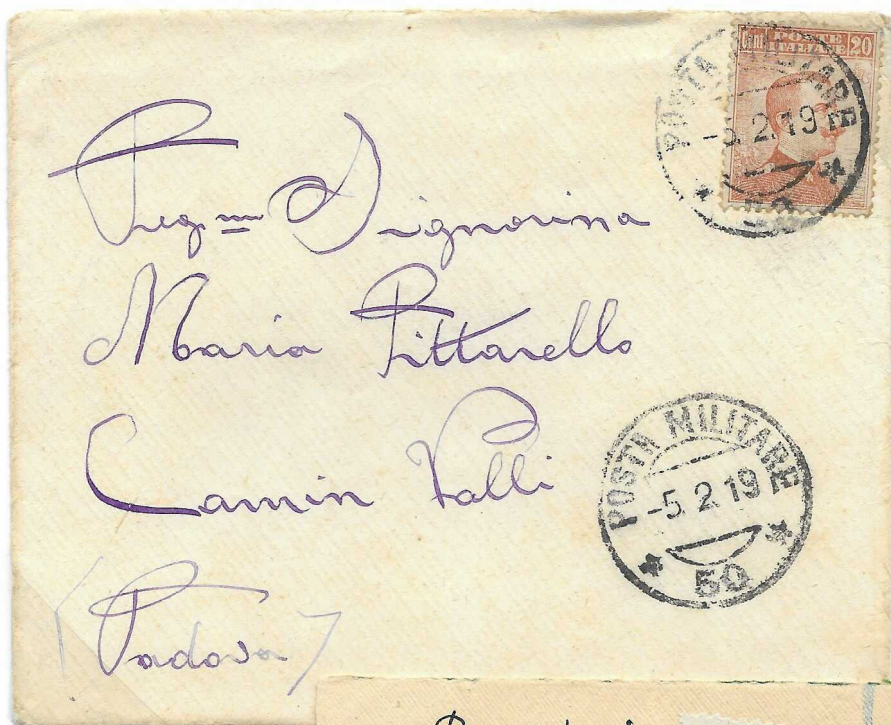 Cent POSTE ITALIANE 20
POSTA MILITARE
-5.2.19
50
Preg.ma Signorina
Maria Pittarello
Camin Valli
(Padova)
POSTA MILITARE
-5.2.19
50